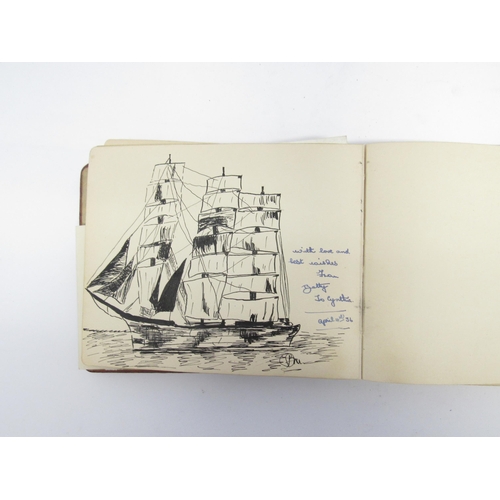 with love and
best wishes
from
Betty
To Cynthia
April 2nd/36